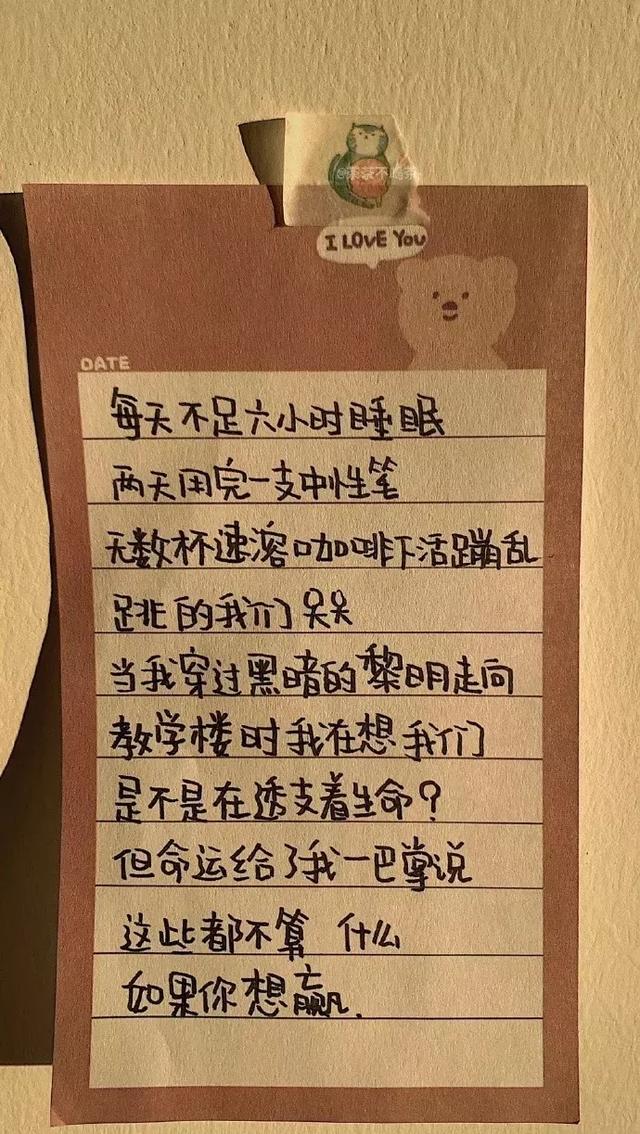 I LOVE YOU
DATE
每天不足六小时睡眠
两天用完一支中性笔
无数杯速溶咖啡下活蹦乱
跳的我们
当我穿过黑暗的黎明走向
教学楼时我在想我们
是不是在透支着生命？
但命运给了我一巴掌说
这些都不算 什么
如果你想赢.